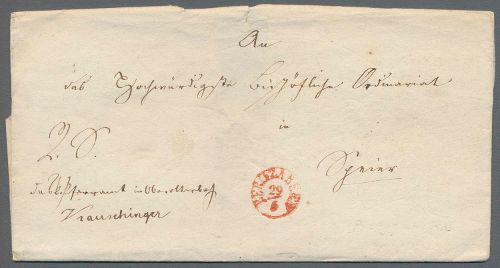 An
das Hochwürdigste Bischöfliche Ordinariat
in
Speier
R. S.
das Pfarramt in Oberotterbach
BERGZABERN
29
6